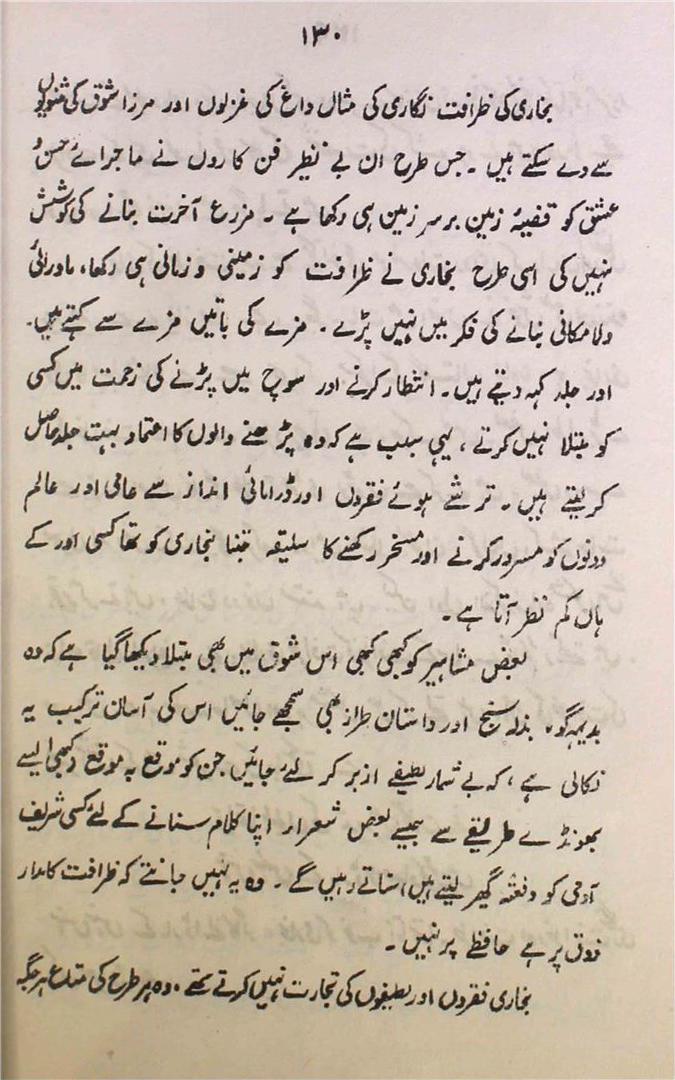 ۱۳۰
بخاری کی ظرافت نگاری کی مثال داغ کی غزلوں اور مرزا شوق کی مثنویوں
سے دے سکتے ہیں ۔ جس طرح ان بے نظیر فن کاروں نے ماجرائے حسن و
عشق کو قضیۂ زمین برسرِ زمین ہی رکھا ہے ۔ مزرعِ آخرت بنانے کی کوشش
نہیں کی اسی طرح بخاری نے ظرافت کو زمینی و زمانی ہی رکھا، ماورائی
ولا مکانی بنانے کی فکر میں نہیں پڑے ۔ مزے کی باتیں مزے سے کہتے ہیں۔
اور جلد کہہ دیتے ہیں۔ انتظار کرنے اور سوچ میں پڑنے کی زحمت میں کسی
کو مبتلا نہیں کرتے ، یہی سبب ہے کہ وہ پڑھنے والوں کا اعتماد بہت جلد حاصل
کر لیتے ہیں ۔ ترشے ہوئے فقروں اور ڈرامائی انداز سے عامی اور عالم
دونوں کو مسرور کرنے اور مسخر رکھنے کا سلیقہ جتنا بخاری کو تھا کسی اور کے
ہاں کم نظر آتا ہے ۔
بعض مشاہیر کو کبھی کبھی اس شوق میں بھی مبتلا دیکھا گیا ہے کہ وہ
بدیہہ گو، بذلہ سنج اور داستان طراز بھی سمجھے جائیں اس کی آسان ترکیب یہ
نکالی ہے ، کہ بے شمار لطیفے ازبر کر لئے جائیں جن کو موقع بہ موقع (کبھی ایسے
بھونڈے طریقے سے جیسے بعض شعراء اپنا کلام سنانے کے لئے کسی شریف
آدمی کو دفعتہً گھیر لیتے ہیں) سناتے رہیں گے ۔ وہ یہ نہیں جانتے کہ ظرافت کا مدار
ذوق پر ہے حافظے پر نہیں ۔
بخاری فقروں اور لطیفوں کی تجارت نہیں کرتے تھے ۔ وہ ہر طرح کی متاع ہر جگہ